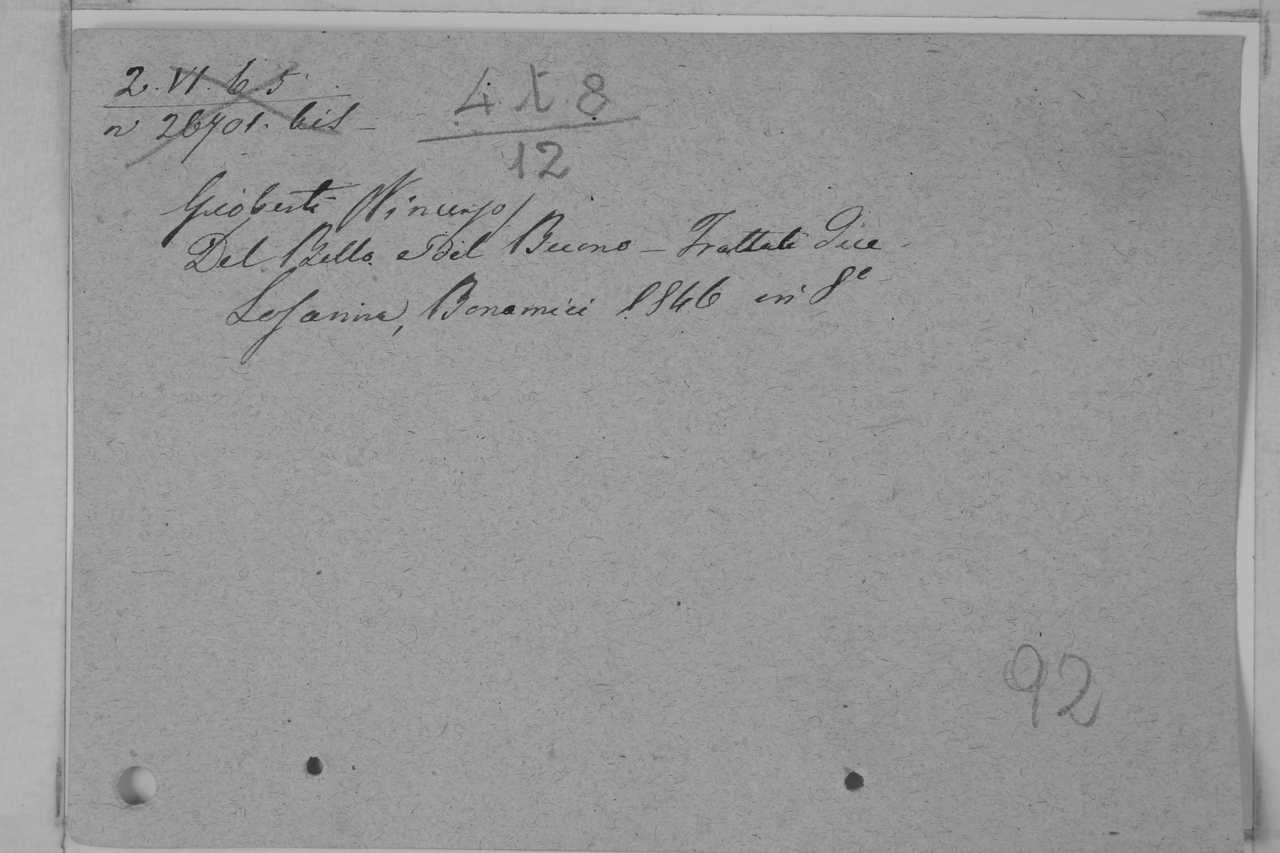 2. VI. 65
n 26701. bis
4. X. 8
12
Gioberti (Vincenzo)
Del Bello e del Buono - Trattati Due.
Losanna, Bonamici 1846 in 8°
92